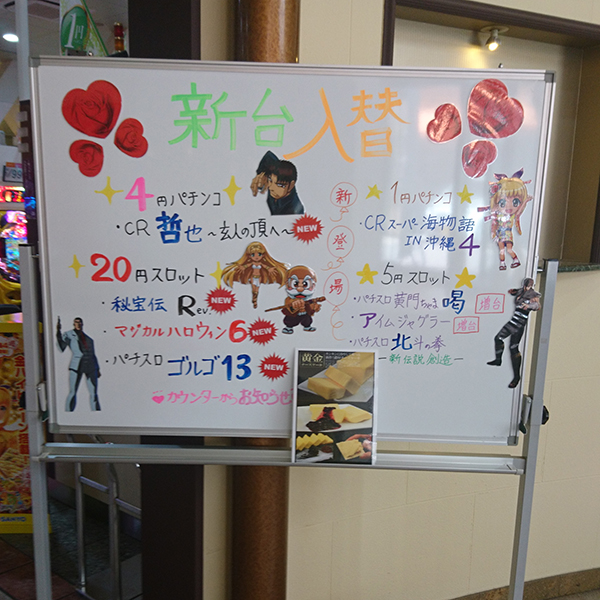 新台入替
4円パチンコ
・CR 哲也 〜玄人の頂へ〜 NEW
20円スロット
・秘宝伝 Rev. NEW
・マジカルハロウィン6 NEW
・パチスロ ゴルゴ13 NEW
カウンターからお知らせ
新登場
1円パチンコ
・CRスーパー海物語
IN沖縄4
5円スロット
・パチスロ黄門ちゃま喝 増台
・アイムジャグラー 増台
・パチスロ 北斗の拳
－新伝説創造－
黄金
1円
SANYO